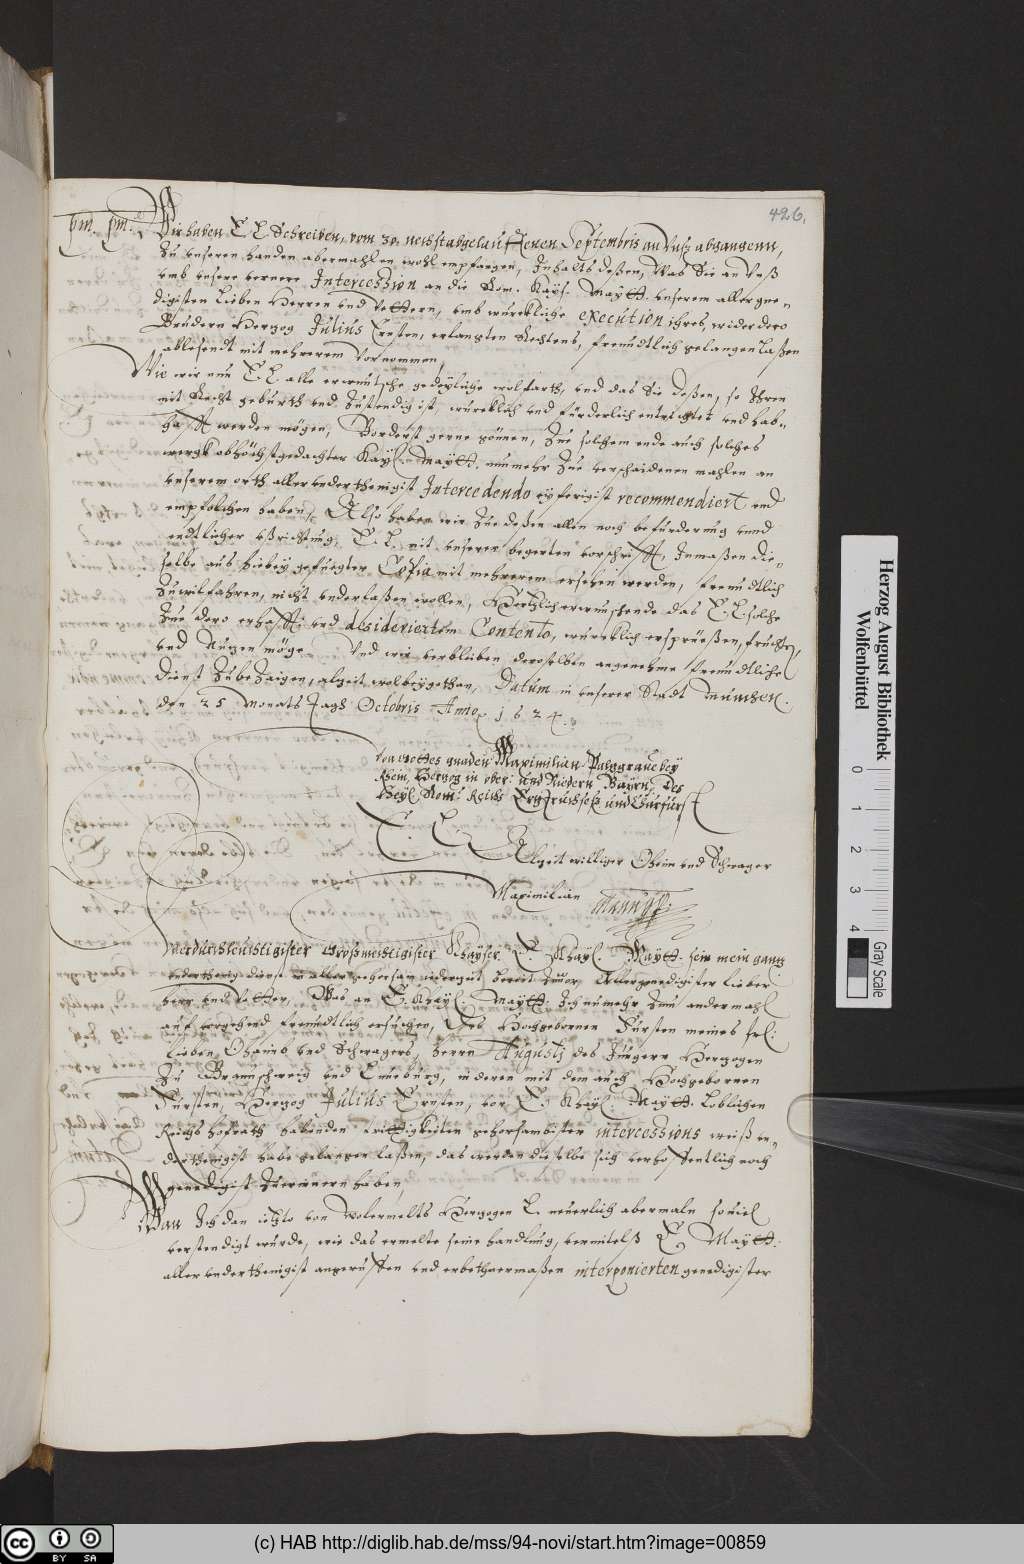 426.
pm. pm.
Wir haben E L Schreiben, vom 30. nechst abgelauffenen Septembris an Unß abgangenn,
Zu unseren handen abermahlen wohl empfangen, Inhalts deßen, Was Sie an Unß
umb unsere fernere Intercession an die Rom. Kays. Maytt. unserem allergne-
digisten Lieben Herren und Vettern, umb würckliche execution ihres, wider dero
Brudern Herzog Julius Ernsten, erlangten Rechtens, freundtlich gelangen laßen
ablesendt mit mehrerem vernommen,
Wie wir nun E. L alle erwüntsche gedeyliche wolfarth, und das Sie deßen, so Ihren
mit Recht geburth und Zustendig ist, würcklich und fürderlich entrichtet und hab-
hafft werden mögen, Vorderst gerne gönnen, Zue solchem ende auch solches
werck obhöchstgedachter Kayl. Maytt. nunmehr Zue verschaidenen mahlen an
unserem orth aller underthenigist Intercedendo eyferigist recommendiert und
empfolchen haben, Also haben wir Zue deßen allen noch befürderung unnd
endtlicher ußrichtung, E. L. mit unserer begerten vorschrifft, Inmaßen die-
selbe aus hiebey gefuegter Copia mit mehrerem ersehen werden, freundtlich
Zuwilfahren, nicht underlaßen wollen, Hertzlich erwünschende das E. L solche
Zue dero erhafft: und desideriertem Contento, würcklich ersprießen, fruchten
und Nutzen möge Und wir verbleiben deroselben angenehme freundtliche
Dienst Zubezaigen, alzeit wolbeygethan, Datum in unserer Stadt München.
den 25 Monats Tags Octobris Anno, 1624.
Von Gottes gnaden Maximilian Palzgraue bey
Rhein, Herzog in ober: und Niedern Bayrn, Des
Heyl Rom: Reichs Ertztruchseß und Churfürst
E L
Alzeit williger Oheim und Schwager
Maximilian
Allerdurchleuchtigister Großmechtigister Khayser. E. Khayl. Maytt. sein mein gantz
underthenig dienst in aller gehorsam iedergeit bereit Zuvor, Allergenedigister lieber
herr und Vetter, Was an E. Khayl. Maytt. Ich nunmehr Zum andermahl
auf vorgehend freundtlich ersuchen, Des Hochgebornen Fürsten meines frl:
lieben Ohaimb und Schwagers, herrn Augusti des Jüngern Herzogen
Zu Braunschweig und Lüneburg, in deren mit dem auch Hochgebornen
Fürsten, Herzog Julius Ernsten, vor E. Khayl. Maytt. Loblichen
Reichs hofrath habenden strittigkeiten gehorsambister intercessions weiß un-
derthenigist habe gelangen laßen, das werden dieselbe sich verhoffentlich noch
genedigist Zuerinnern haben,
Wan Ich dan ietzto von wolermelts Herzogen L. neuerlich abermaln souiel
verstendigt wurde, wie das ermelte seine handlung, vermitelß E. Maytt.
aller underthenigist angeruffen und erbethnermaßen interponierten genedigister
Herzog August Bibliothek
Wolfenbüttel
0 1 2 3 4
Gray Scale
BY SA
(c) HAB http://diglib.hab.de/mss/94-novi/start.htm?image=00859